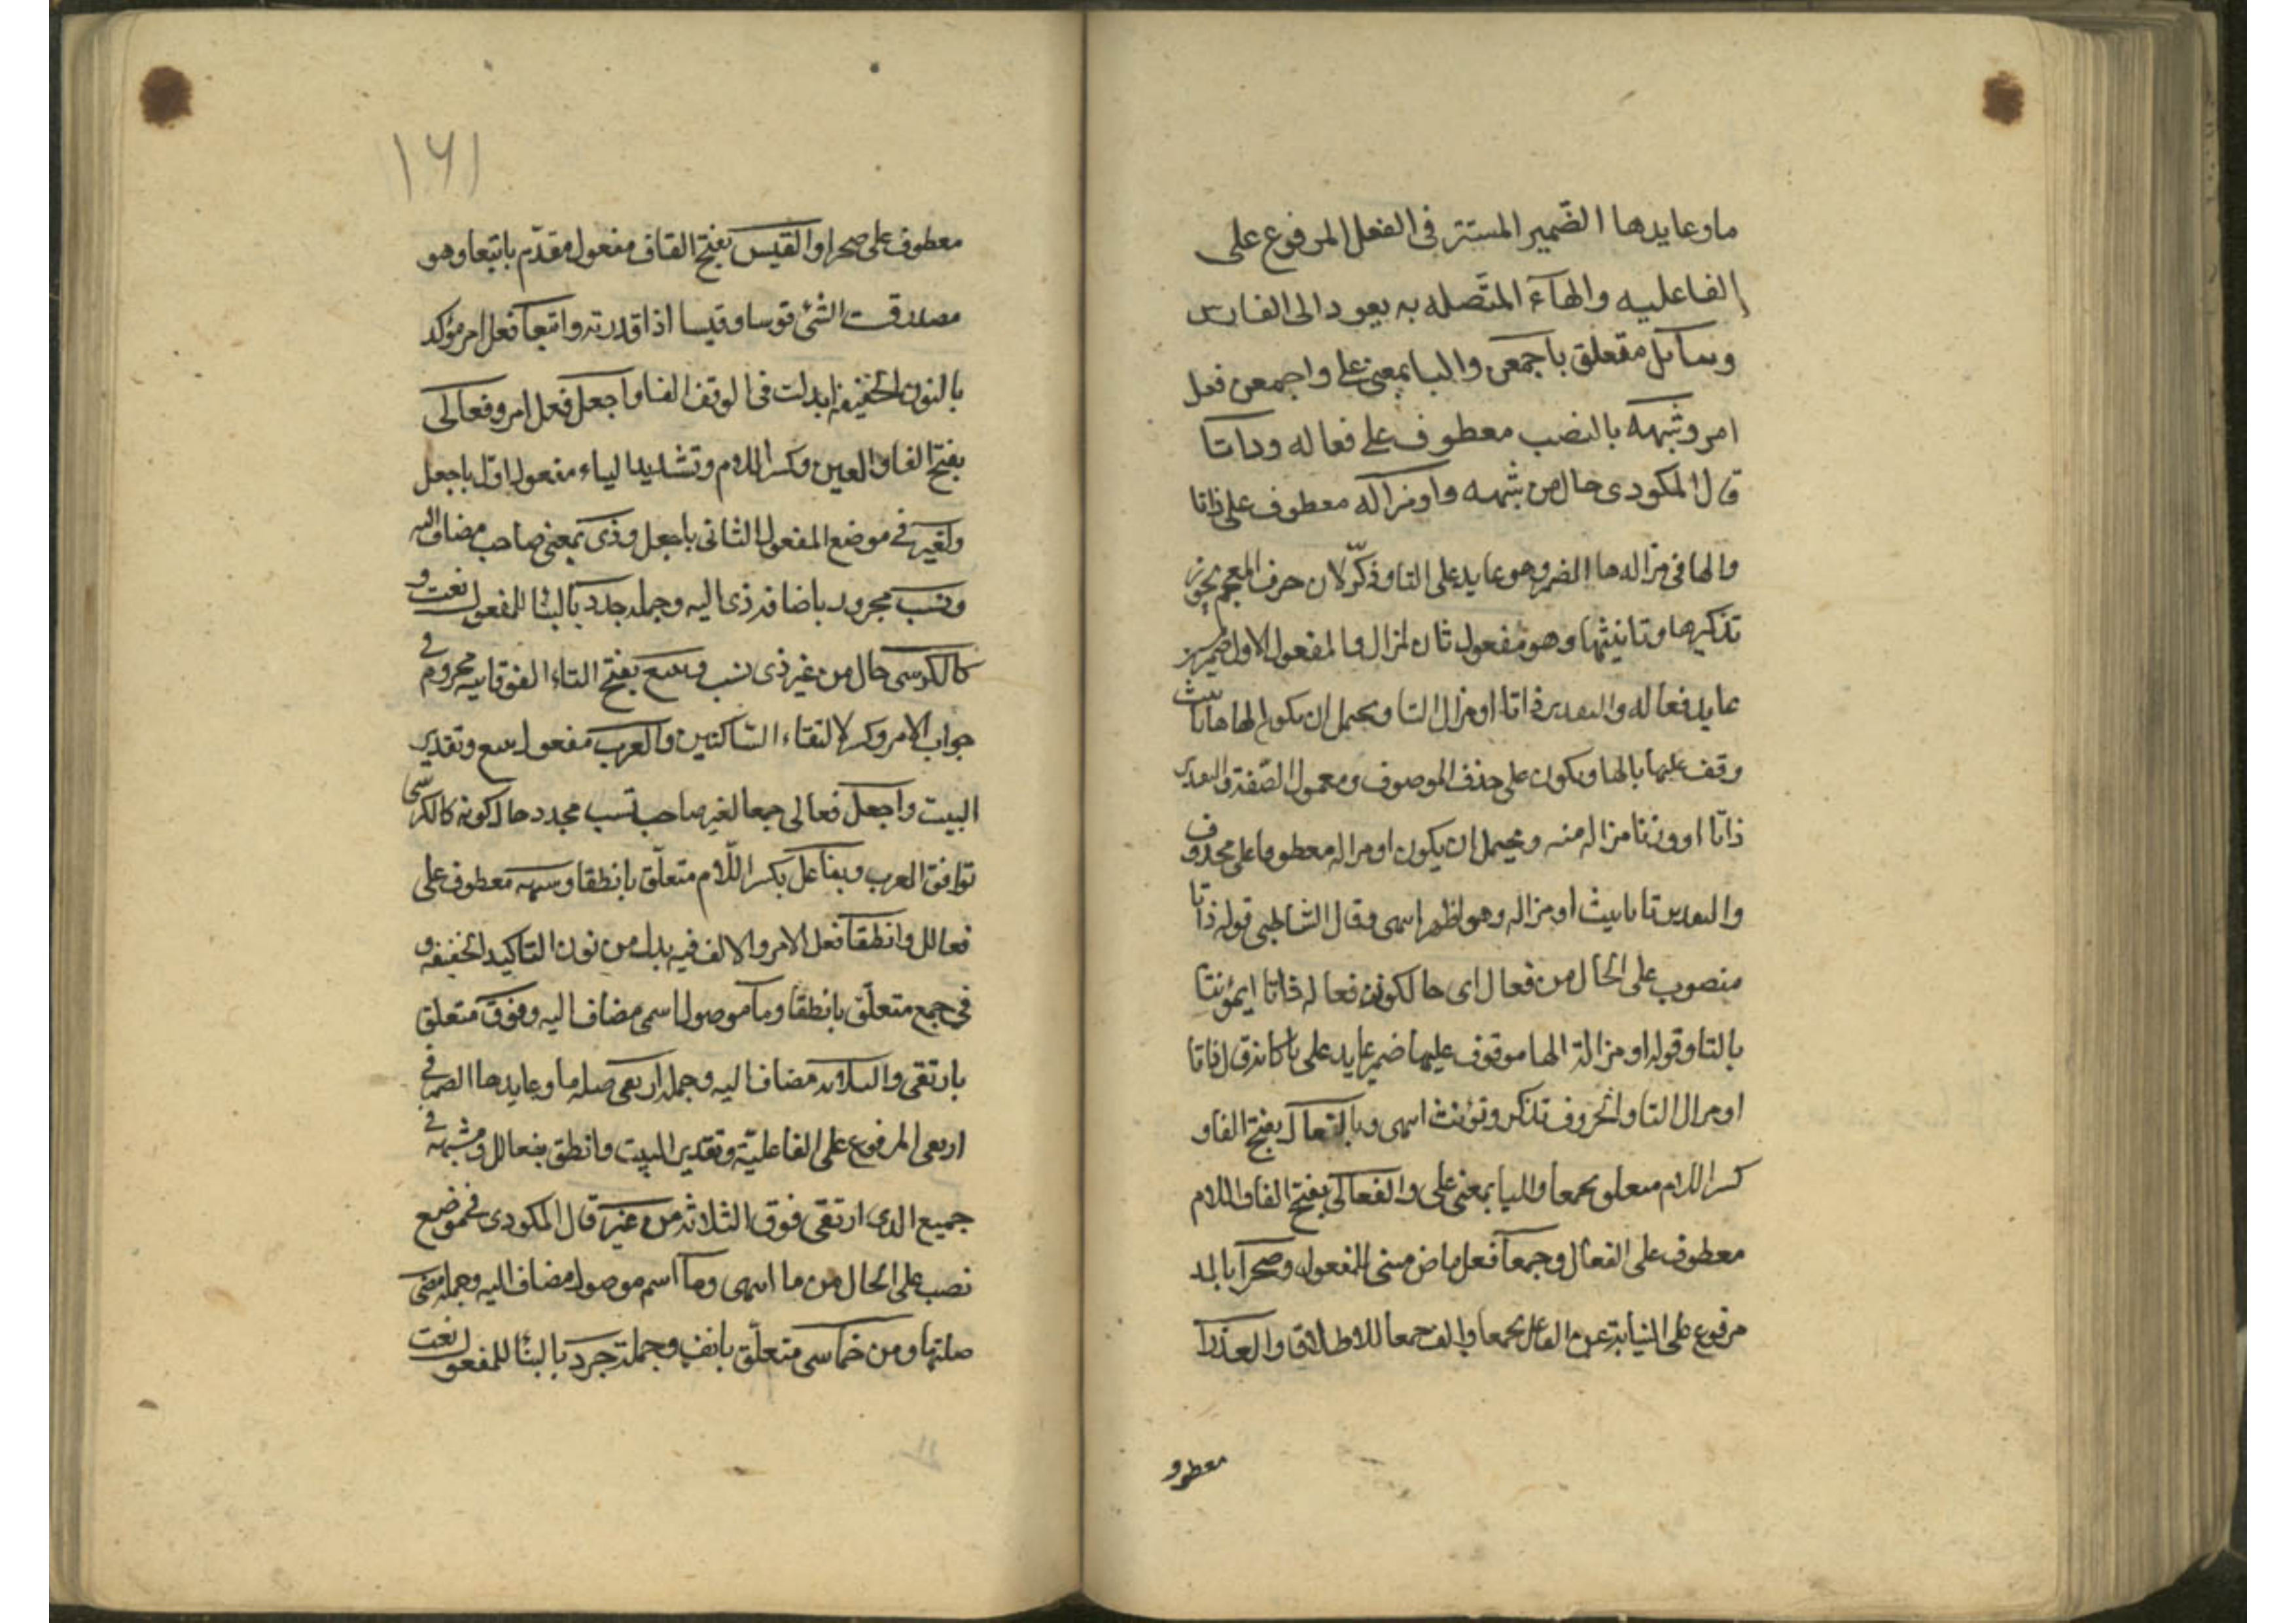 ما وعايدها الضمير المستتر فى الفعل المرفوع على
الفاعليه والهآء المتصله به يعود الى الفارس
وبفعآئل متعلق باجمعن والبا بمعنى على واجمعن فعل
امر وشبهه بالنصب معطوف على فعاله وذاتا
قال المكودى حال من شبهه واو مزاله معطوف على ذاتا
والها فى مزاله ها الضمير وهو عايد على التا وذكّر لان حرف المعجم يجوز
تذكيرها وتانيثها وهو مفعول ثان لمزال والمفعول الاول ضمير
عايد فعاله والتقدير ذاتا او مزال التا ويحتمل ان يكون الها ها تانيث
وقف عليها بالها ويكون على حذف الموصوف ومعمول الصّفة والتقدير
ذاتا او وزنا مزاله منه ويحتمل ان يكون او مزاله معطوفا على محذوف
والتقدير تا تانيث او مزاله وهو اظهر انتهى وقال الشاطبى قوله ذاتا
منصوب على الحال من فعال اى حال كون فعاله ذا تا اى مؤنثا
بالتا وقوله او مزالة الها موقوف عليها ضمير عايد على تا كانه قال ذا تا
او مزال التا والحروف تذكر وتؤنث انتهى وبالفعآلى بفتح الفا و
كسر اللام متعلق بجمعا والبا بمعنى على والفعآلى بفتح الفا واللام
معطوف على الفعال وجمعآ فعل ماض مبنى للمفعول وصحرآ بالمد
مرفوع على النيابة عن الفاعل بجمعا والف جمعا للاطلاق والعذرا
معطوف
١٦١
معطوف على صحرا والقيس بفتح القاف مفعول مقدّم باتبعا وهو
مصدر قست الشئ قوسا وقيسا اذا قدرته واتبعا فعل امر مؤكد
بالنون الخفيفه ابدلت فى الوقف الفا واجعل فعل امر وفعالى
بفتح الفا والعين وكسر اللام وتشديد الياء مفعول اول باجعل
ولغير فى موضع المفعول الثانى باجعل وذى بمعنى صاحب مضاف اليه
ونسب مجرور باضافة ذى اليه وجمله جدد بالبنا للمفعول نعت و
كالكرسى حال من غير ذى نسب وتتبع بفتح التاء الفوقانيه مجزوم فى
جواب الامر وكسر لالتقاء الساكنين والعرب مفعول تتبع وتقدير
البيت واجعل فعالى جمعا لغير صاحب نسب مجدد حال كونه كالكرسّى
توافق العرب وبفعالل بكسر اللّام متعلّق بانطقا وشبهه معطوف على
فعالل وانطقا فعل الامر والالف فيه بدل من نون التاكيد الخفيفه و
فى جمع متعلّق بانطقا وما موصول اسمى مضاف اليه وفوق متعلق
بارتقى والثلاثه مضاف اليه وجمله ارتقى صله ما وعايدها الضمير فى
ارتقى المرفوع على الفاعليّة وتقدير البيت وانطق بفعالل وشبهه فى
جميع الذى ارتقى فوق الثلاثه من غير قال المكودى فى موضع
نصب على الحال من ما انتهى وما اسم موصول مضاف اليه وجملة مضى
صلتها ومن خماسى متعلّق بانف وجملة جرد بالبنا للمفعول نعت